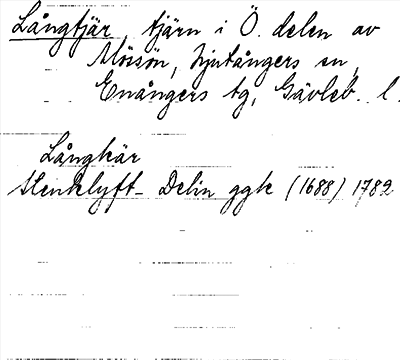 Långtjär, tjärn i Ö. delen av
Mössön, Njutångers sn,
Enångers tg, Gävleb. l.
Långkär
Stenklyft- Delin ggk (1688) 1782